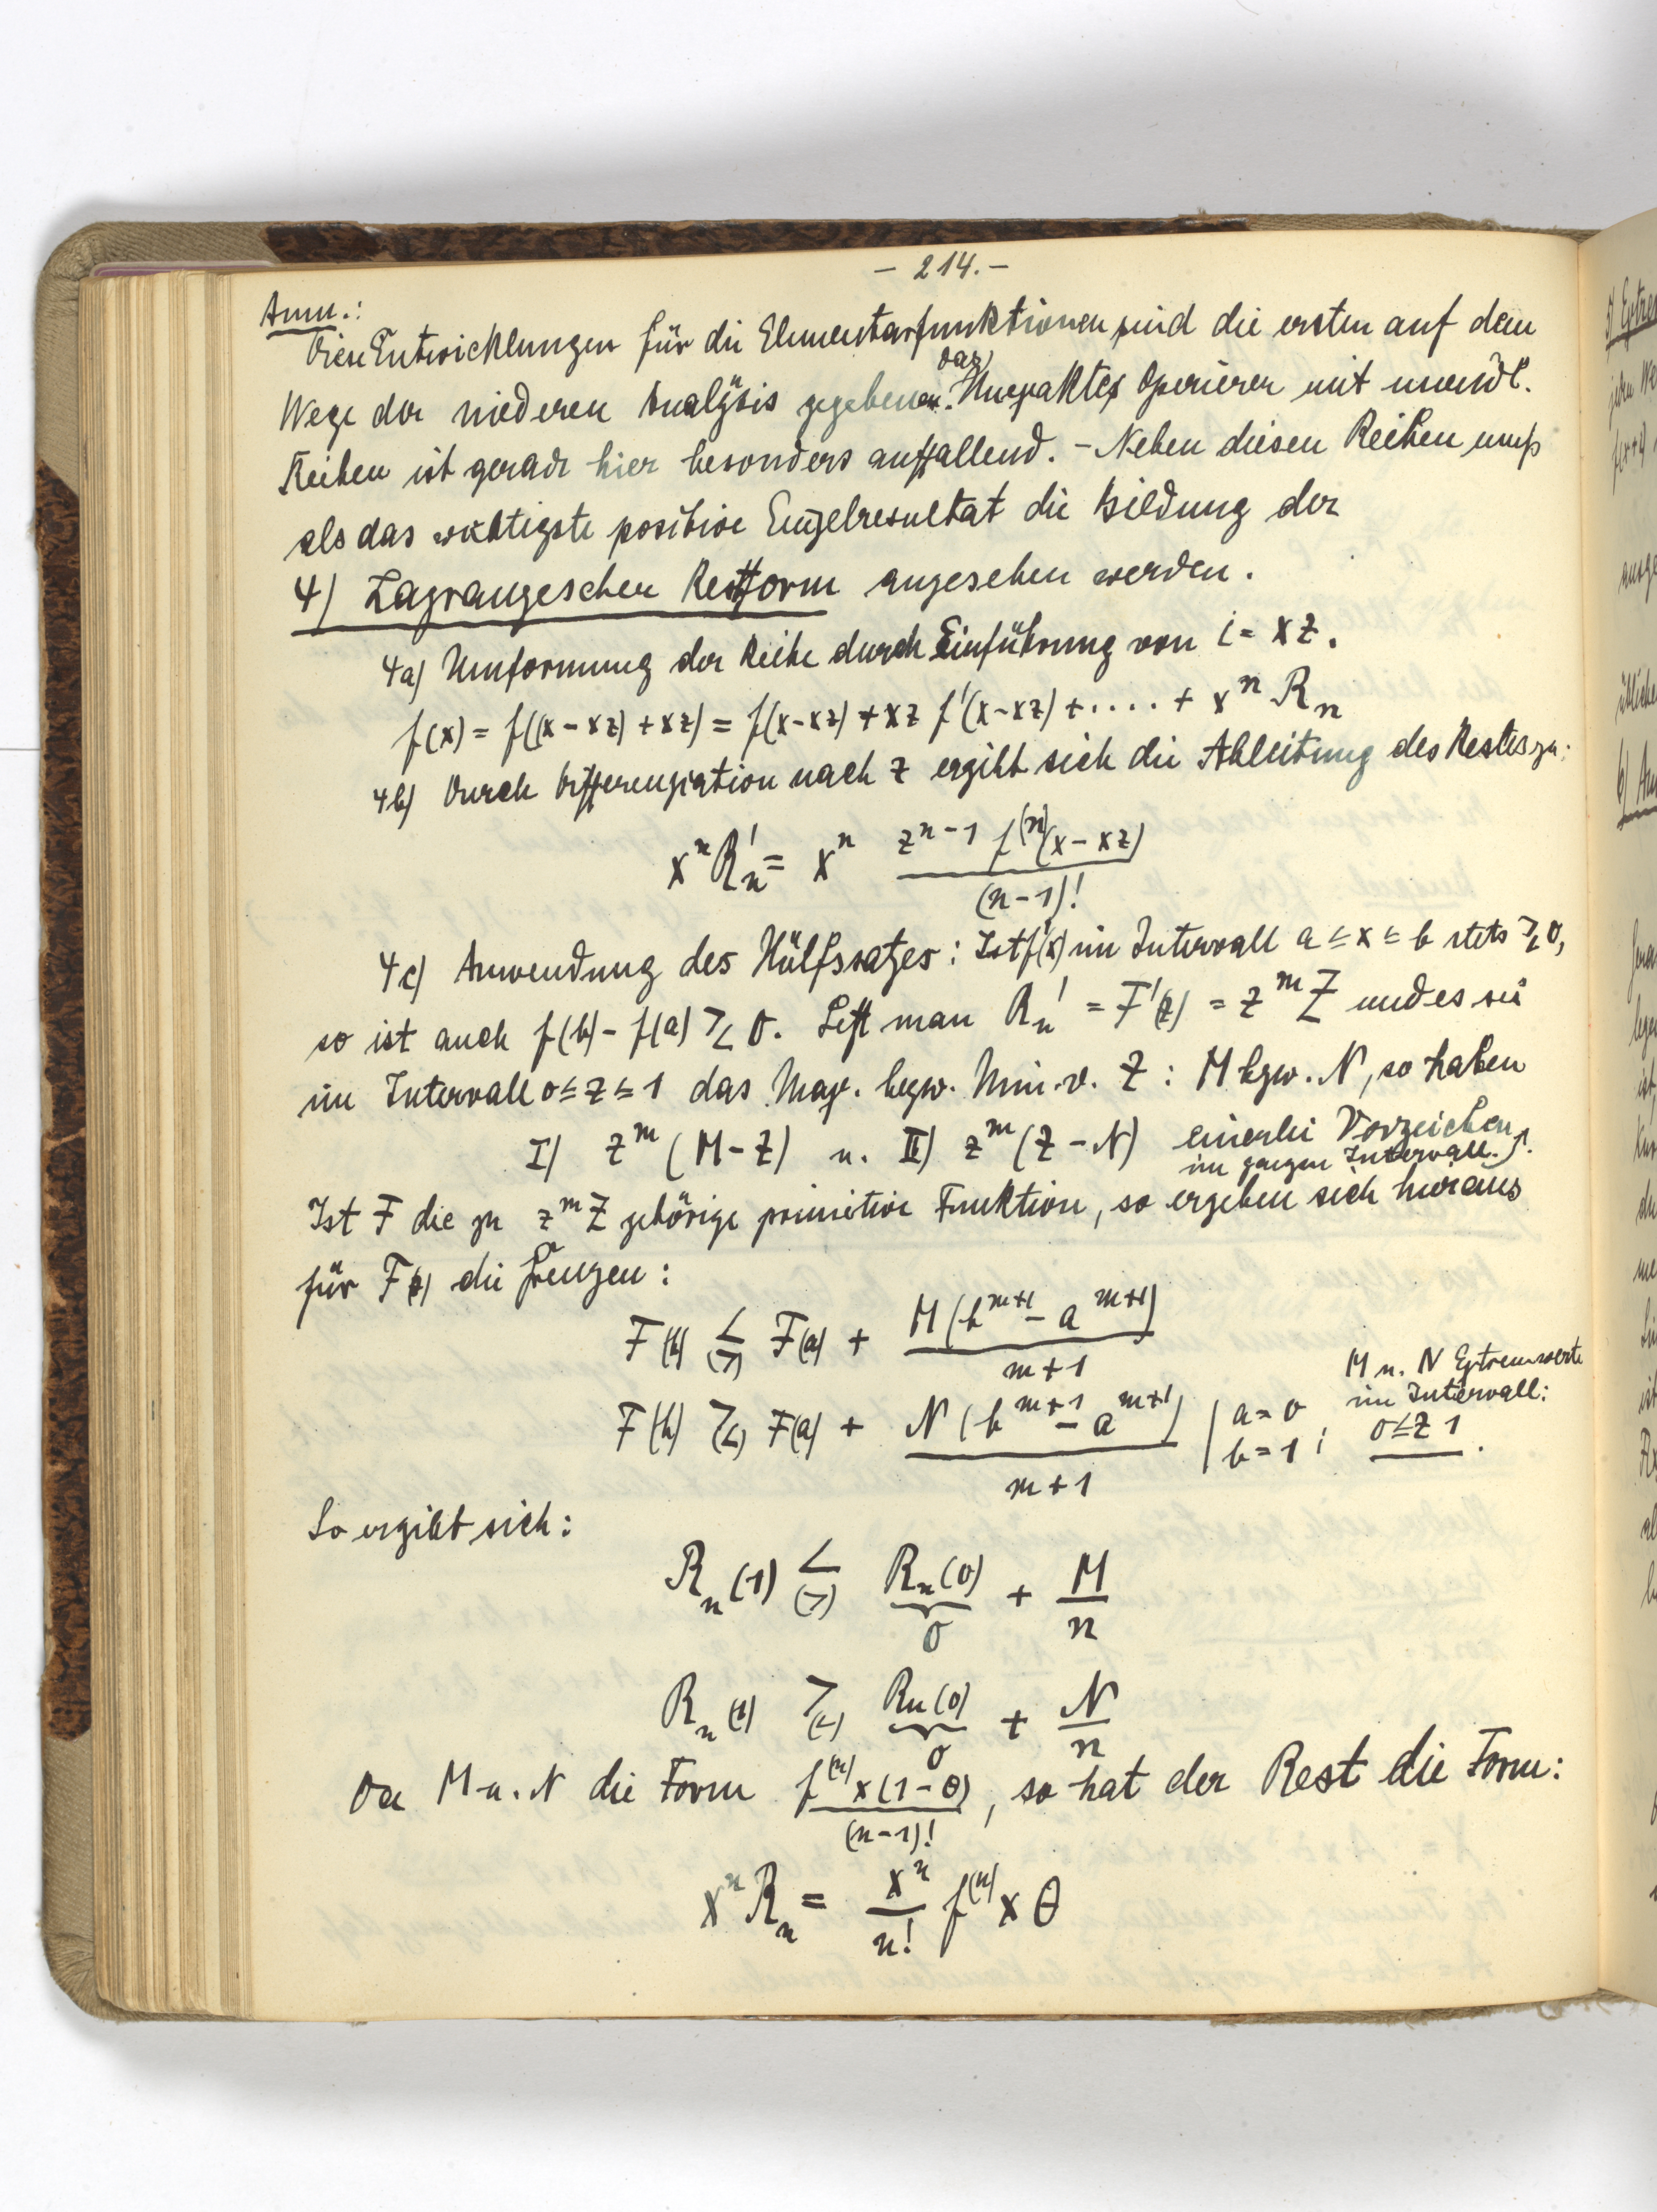 - 214. -
Anm.:
Diese Entwicklungen für die Elementarfunktionen sind die ersten auf dem
Wege der niederen Analysis gegebenen. Das unexakte Operieren mit unendl.
Reihen ist gerade hier besonders auffallend. - Neben diesen Reihen muß
als das wichtigste positive Einzelresultat die Bildung der
4) Lagrangeschen Restform angesehen werden.
4a) Umformung der Reihe durch Einführung von i = xz.
f(x) = f((x-xz)+xz) = f(x-xz) + xz f'(x-xz) + .... + xⁿ Rₙ
4b) Durch Differenziation nach z ergibt sich die Ableitung des Restes zu:
xⁿ R'ₙ = xⁿ zⁿ⁻¹ f⁽ⁿ⁾(x-xz) / (n-1)!
4c) Anwendung des Hülfssatzes: Ist f'(x) im Intervall a ≤ x ≤ b stets ≷ 0,
so ist auch f(b) - f(a) ≷ 0. Setzt man R'ₙ = F'(z) = zᵐ Z und es sei
im Intervall 0 ≤ z ≤ 1 das Max. bezw. Min. v. Z : M bzw. N, so haben
I) zᵐ (M-Z) u. II) zᵐ (Z-N) einerlei Vorzeichen
im ganzen Intervall.
Ist F die zu zᵐ Z gehörige primitive Funktion, so ergeben sich hieraus
für F(z) die Grenzen:
F(b) < (>) F(a) + M(bᵐ⁺¹ - aᵐ⁺¹) / m+1
F(b) > (<) F(a) + N(bᵐ⁺¹ - aᵐ⁺¹) / m+1 | a = 0 b = 1;
M u. N Extremwerte
im Intervall:
0 ≤ z 1.
So ergibt sich:
Rₙ(1) < (>) Rₙ(0) + M / n
0
Rₙ(1) > (<) Rₙ(0) + N / n
0
Da M u. N die Form f⁽ⁿ⁾ x(1-θ) / (n-1)!, so hat der Rest die Form:
xⁿ Rₙ = xⁿ / n! f⁽ⁿ⁾ x θ